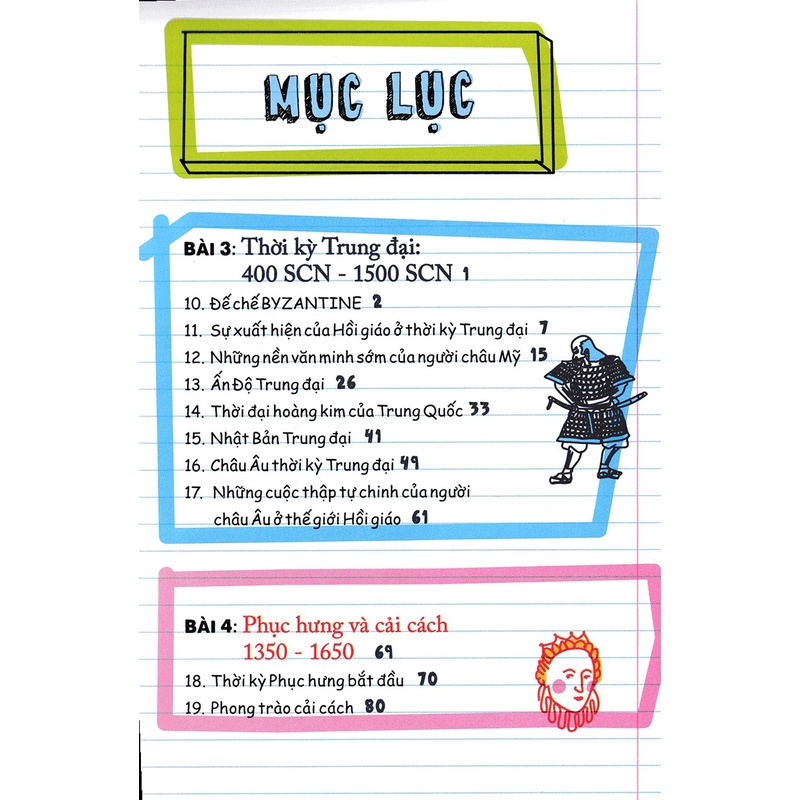 MỤC LỤC
BÀI 3: Thời kỳ Trung đại:
400 SCN - 1500 SCN 1
10. Đế chế BYZANTINE 2
11. Sự xuất hiện của Hồi giáo ở thời kỳ Trung đại 7
12. Những nền văn minh sớm của người châu Mỹ 15
13. Ấn Độ Trung đại 26
14. Thời đại hoàng kim của Trung Quốc 33
15. Nhật Bản Trung đại 41
16. Châu Âu thời kỳ Trung đại 49
17. Những cuộc thập tự chinh của người
châu Âu ở thế giới Hồi giáo 61
BÀI 4: Phục hưng và cải cách
1350 - 1650 69
18. Thời kỳ Phục hưng bắt đầu 70
19. Phong trào cải cách 80